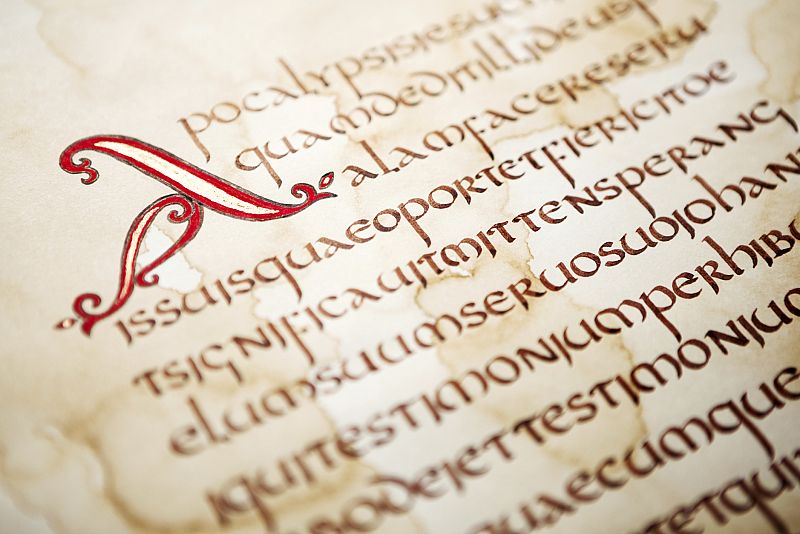 Apocalypsisiesuc
quamdeditillideusp
alamfacereseru
issuisquaeoportetfiericitoe
tsignificauitmittensperang
elumsuumseruosuoiohann
iquitestimoniumperhib
bodeiettestimoniu
uaecumque
etqui